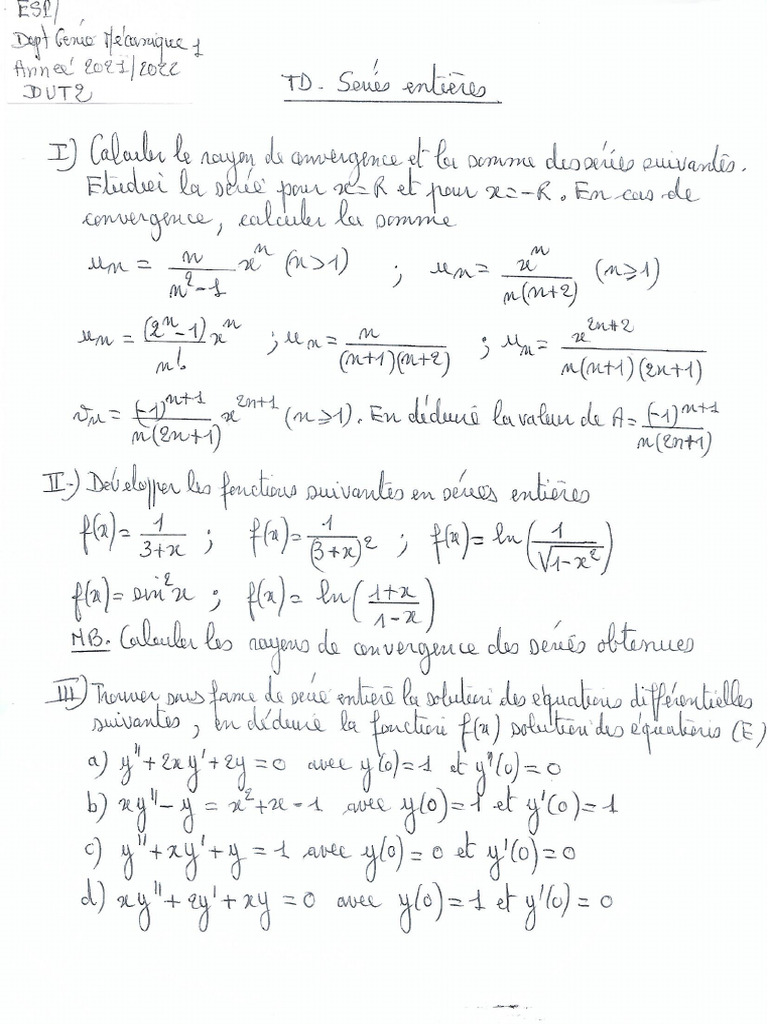 ESP/
Dept Génie Mécanique 1
Année 2021/2022
DUT2
TD. Séries entières
I) Calculer le rayon de convergence et la somme des séries suivantes.
Etudier la série pour x=R et pour x=-R. En cas de
convergence, calculer la somme
u_n = n/(n²-1) x^n (n>1) ; u_n = x^n/(n(n+2)) (n≥1)
u_n = (2^n-1)x^n/n! ; u_n = n/((n+1)(n+2)) ; u_n = x^(2n+2)/(n(n+1)(2n+1))
v_n = (-1)^(n+1)/(n(2n+1)) x^(2n+1) (n≥1). En déduire la valeur de A = (-1)^(n+1)/(n(2n+1))
II-) Développer les fonctions suivantes en séries entières
f(x) = 1/(3+x) ; f(x) = 1/(3+x)² ; f(x) = ln(1/√(1-x²))
f(x) = sin²x ; f(x) = ln((1+x)/(1-x))
NB. Calculer les rayons de convergence des séries obtenues
III) Trouver sous forme de série entière la solution des équations différentielles
suivantes, en déduire la fonction f(x) solution des équations (E)
a) y"+2xy'+2y=0 avec y(0)=1 et y"(0)=0
b) xy"-y = x²+x-1 avec y(0)=1 et y'(0)=1
c) y"+xy'+y=1 avec y(0)=0 et y'(0)=0
d) xy"+2y'+xy=0 avec y(0)=1 et y'(0)=0